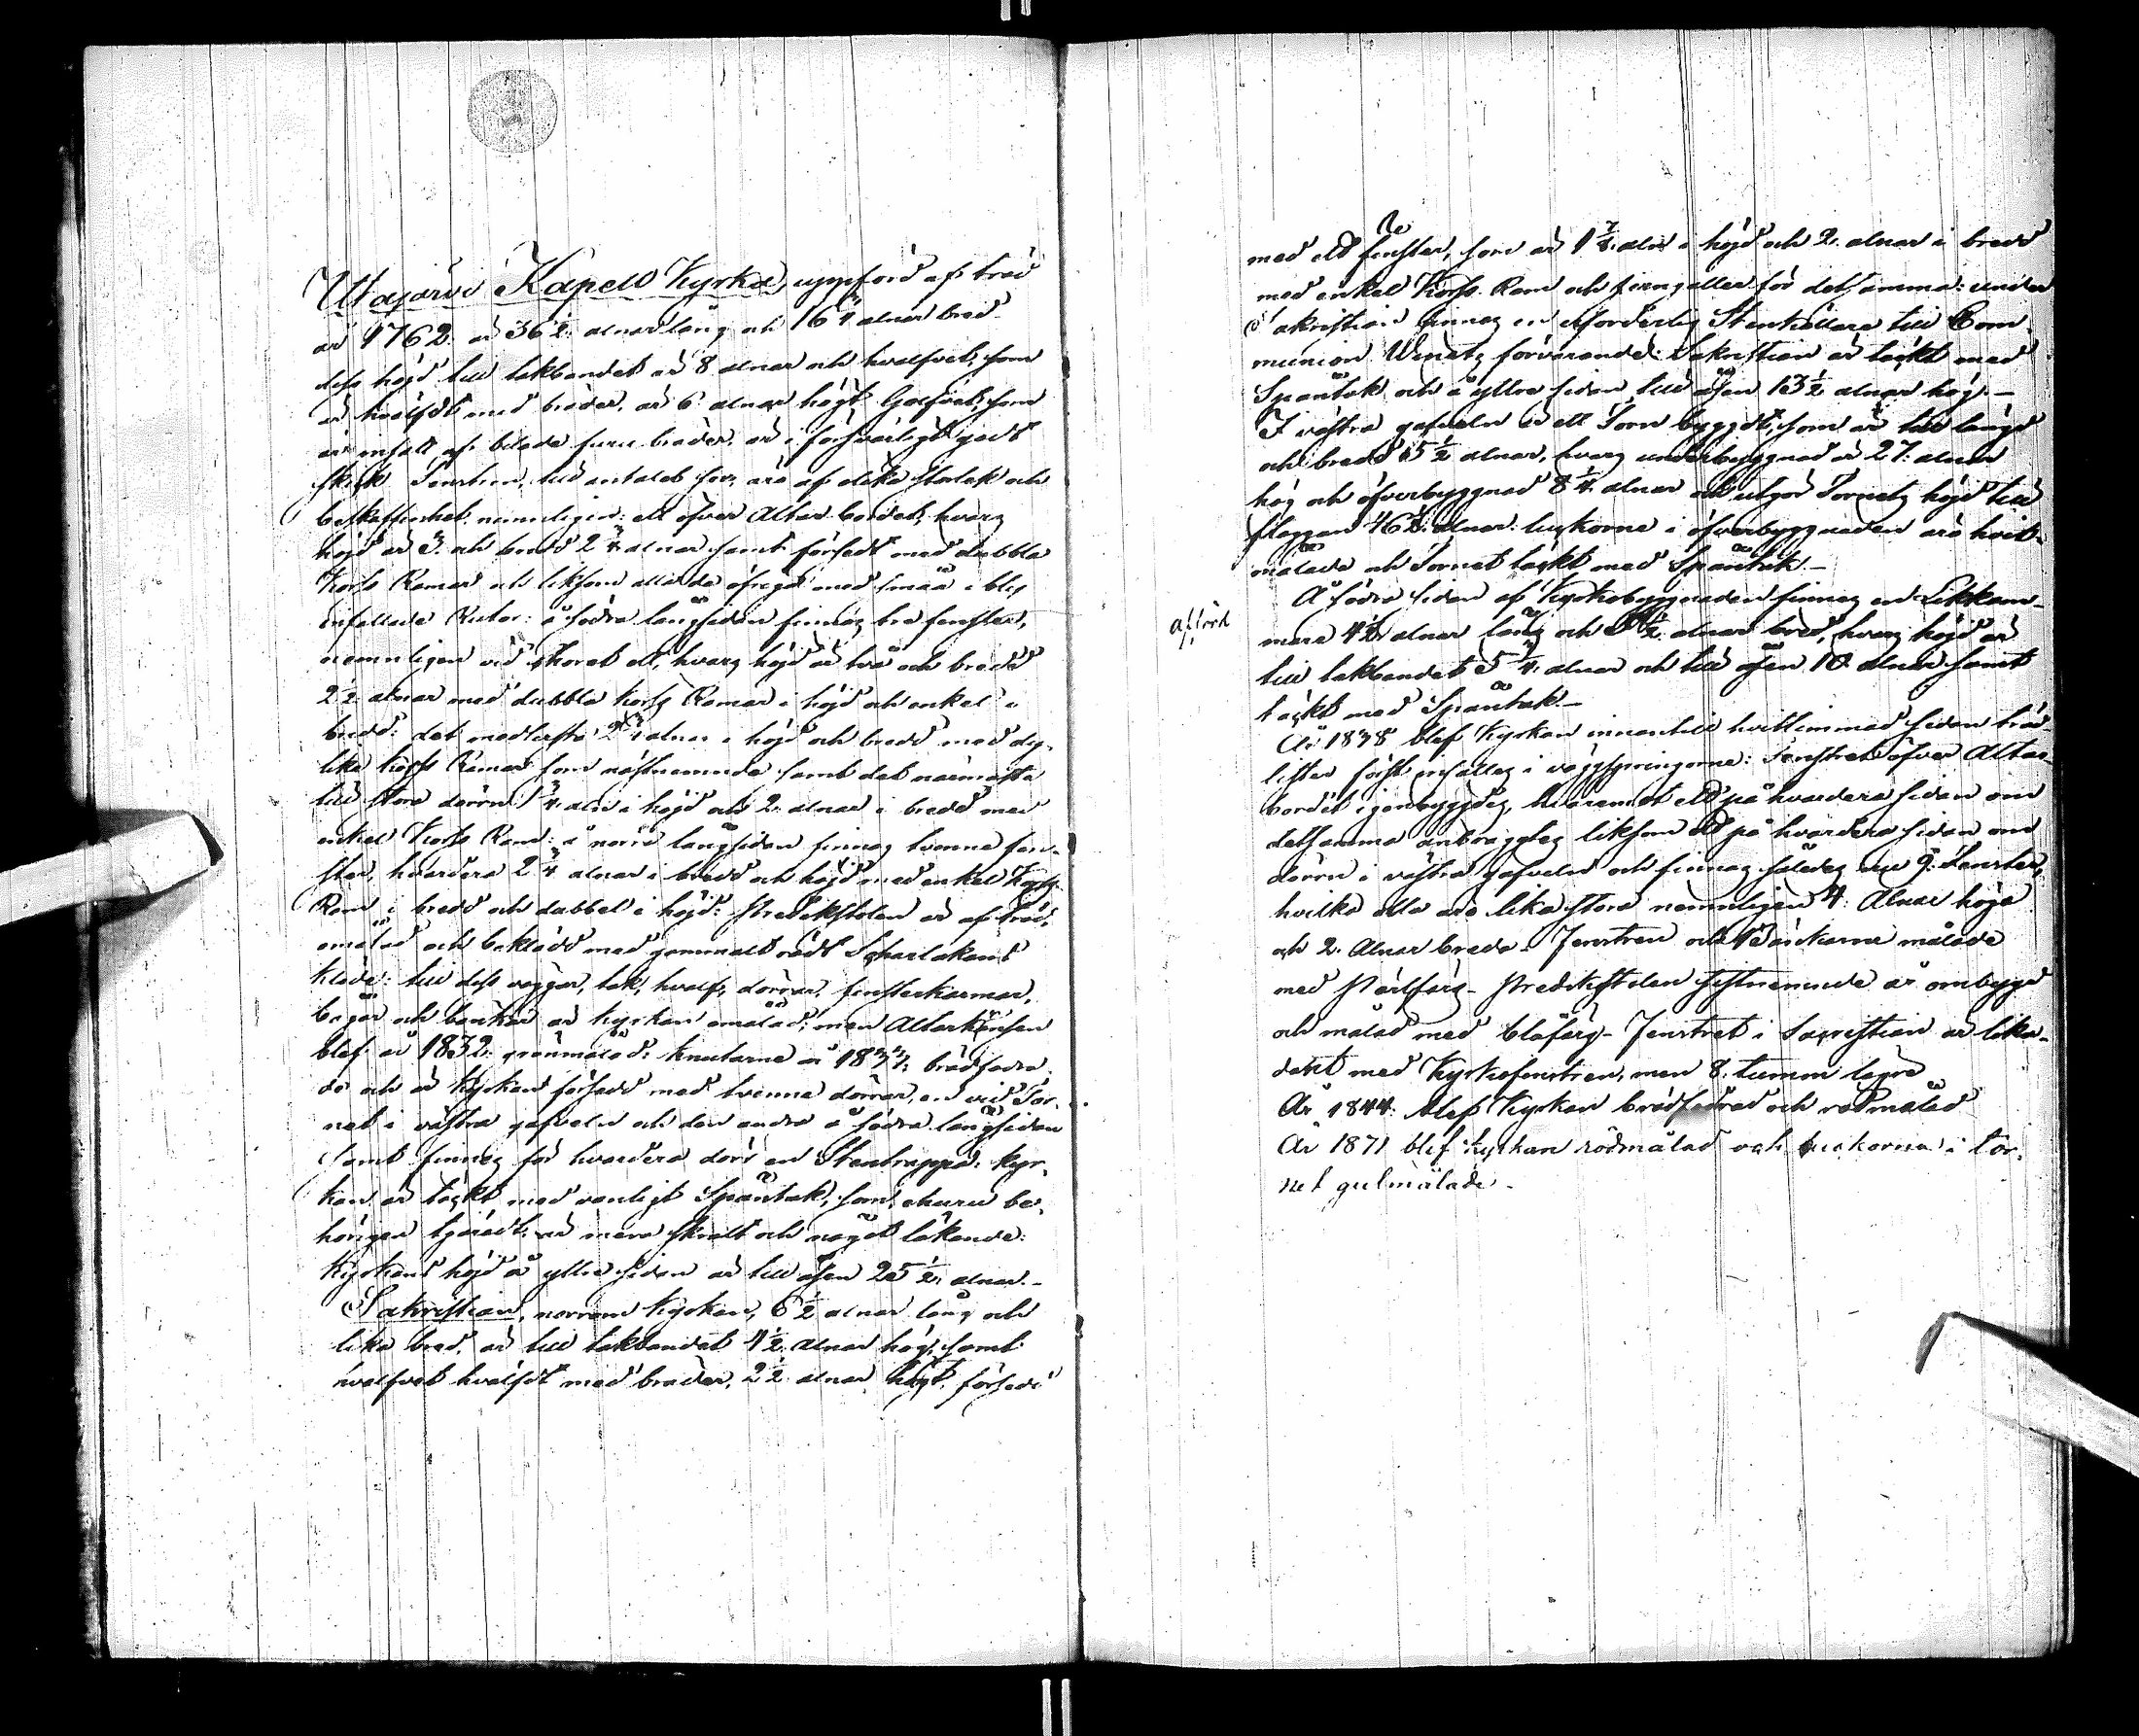 Utajärvi Kapells Kyrka, uppförd af träd
år 1762. är 36½ alnar lång och 16¼ alnar bred
dess höjd till takbandet är 8 alnar och hvalfvet, som
är hvälfdt med bräder, är 6 alnar högt Golfvet, som
är infält af bilade furu bräder, är i försvarligt godt
skick Fenstren, till antalet sex, äro af olika storlek och
beskaffenhet, nemnligen: ett öfver Altar bordet, hvars
höjd är 3. och bredd 2¾ alnar samt försedt med dubbla
Korss Ramar och liksom alla de öfriga med smäå i bly
infattade Rutor: å södra långsidan finnas tre fenster,
nemnligen vid Choret ett, hvars höjd är två och bredd
2½ alnar med dubbla korss Ramar i höjd och enkel i
bredd: det medlersta 2¼ alnar i höjd och bredd med dy-
lika korss Ramar som nästnemnde samt det närmaste
till stora dörrn 1¾ aln i höjd och 2. alnar i bredd med
enkel Korss Ram: å norra långsidan finnas tvenne fen-
ster, hvardera 2¼ alnar i bredd och höjd med enkel Korss
Ram i bredd och dubbel i höjd: Predikstolen är af träd,
omålad och beklädd med gammalt rödt Scharlakans
kläde: till dess väggar, tak, hvalf, dörrar, fensterkarmar,
bågar och bänkar är kyrkan omålad; men Altarkransen
blef år 1832. grönmålad: knutarne år 1837: brädfodra-
de och är Kyrkan försedd med tvenne dörrar, en vid Tor-
net i västra gafveln och den andra å södra långsidan
samt finnes för hvardera dörr en Stentrappa: Kyr-
kan är täckt med vanligt Spåntak, som, ehuru be-
hörigen tjäradt, är mera skralt och något läkande:
Kyrkans höjd å yttre sidan är till åsen 25½ alnar.-
Sakristian, norrom Kyrkan, 6½ alnar lång och
lika bred, är till takbandet 4½ alnar hög, samt
hvalfvet hvälfdt med bräder, 2½ alnar högt, försedt
med ett fenster, som är 1⅞ aln i höjd och 2. alnar i bredd
med enkel Korss Ram och jerngaller för detsamma: under
Sakristian finnes en erforderlig Stenkällare till Com-
munion Winets förvarande: Sakristian är täckt med
Spåntak och å yttre sidan till åsen 13½ alnar hög.-
I västra gafveln är ett Torn byggdt, som är till längd
och bredd 15½ alnar, hvars underbyggnad är 27. alnar
hög och öfverbyggnad 8¼ alnar och utgör Tornets höjd till
flaggan 46½ alnar: luckorne i öfverbyggnaden äro hvit-
målade och Tornet täckt med Spåntak.-
afförd
Å södra sidan af Kyrkobyggnaden finnes en Likkam-
mare 4½ alnar lång och alnar bred, hvars höjd är
till takbandet 5¼ alnar och till åsen 10 alnar samt
täckt med Spåntak.-
År 1838 blef Kyrkan innantill hvitlimmad sedan träd-
lister först infälles i väggspringorne: Fenstret öfver Altar-
bordet igenbyggdes, hvaremot ett på hvardera sidan om
detsamma anbragtes liksom ett på hvardera sidan om
dörrn i västra gafveln och finnes således nu 9. Fenster,
hvilka alla äro lika stora nemnligen 4: Alnar höga
och 2. Alnar breda - Fenstren och Bänkarne målade
med Pärlfärg - Predikstolen sistnemnde år ombygd
och målad med blåfärg - Fenstret i Sacristian är lika-
dant med Kyrkofenstren, men 8. tum lägre
År 1844: blef Kyrkan brädfodrad och rödmålad
År 1871 blef kyrkan rödmålad och luckorna i tor-
net gulmålade -